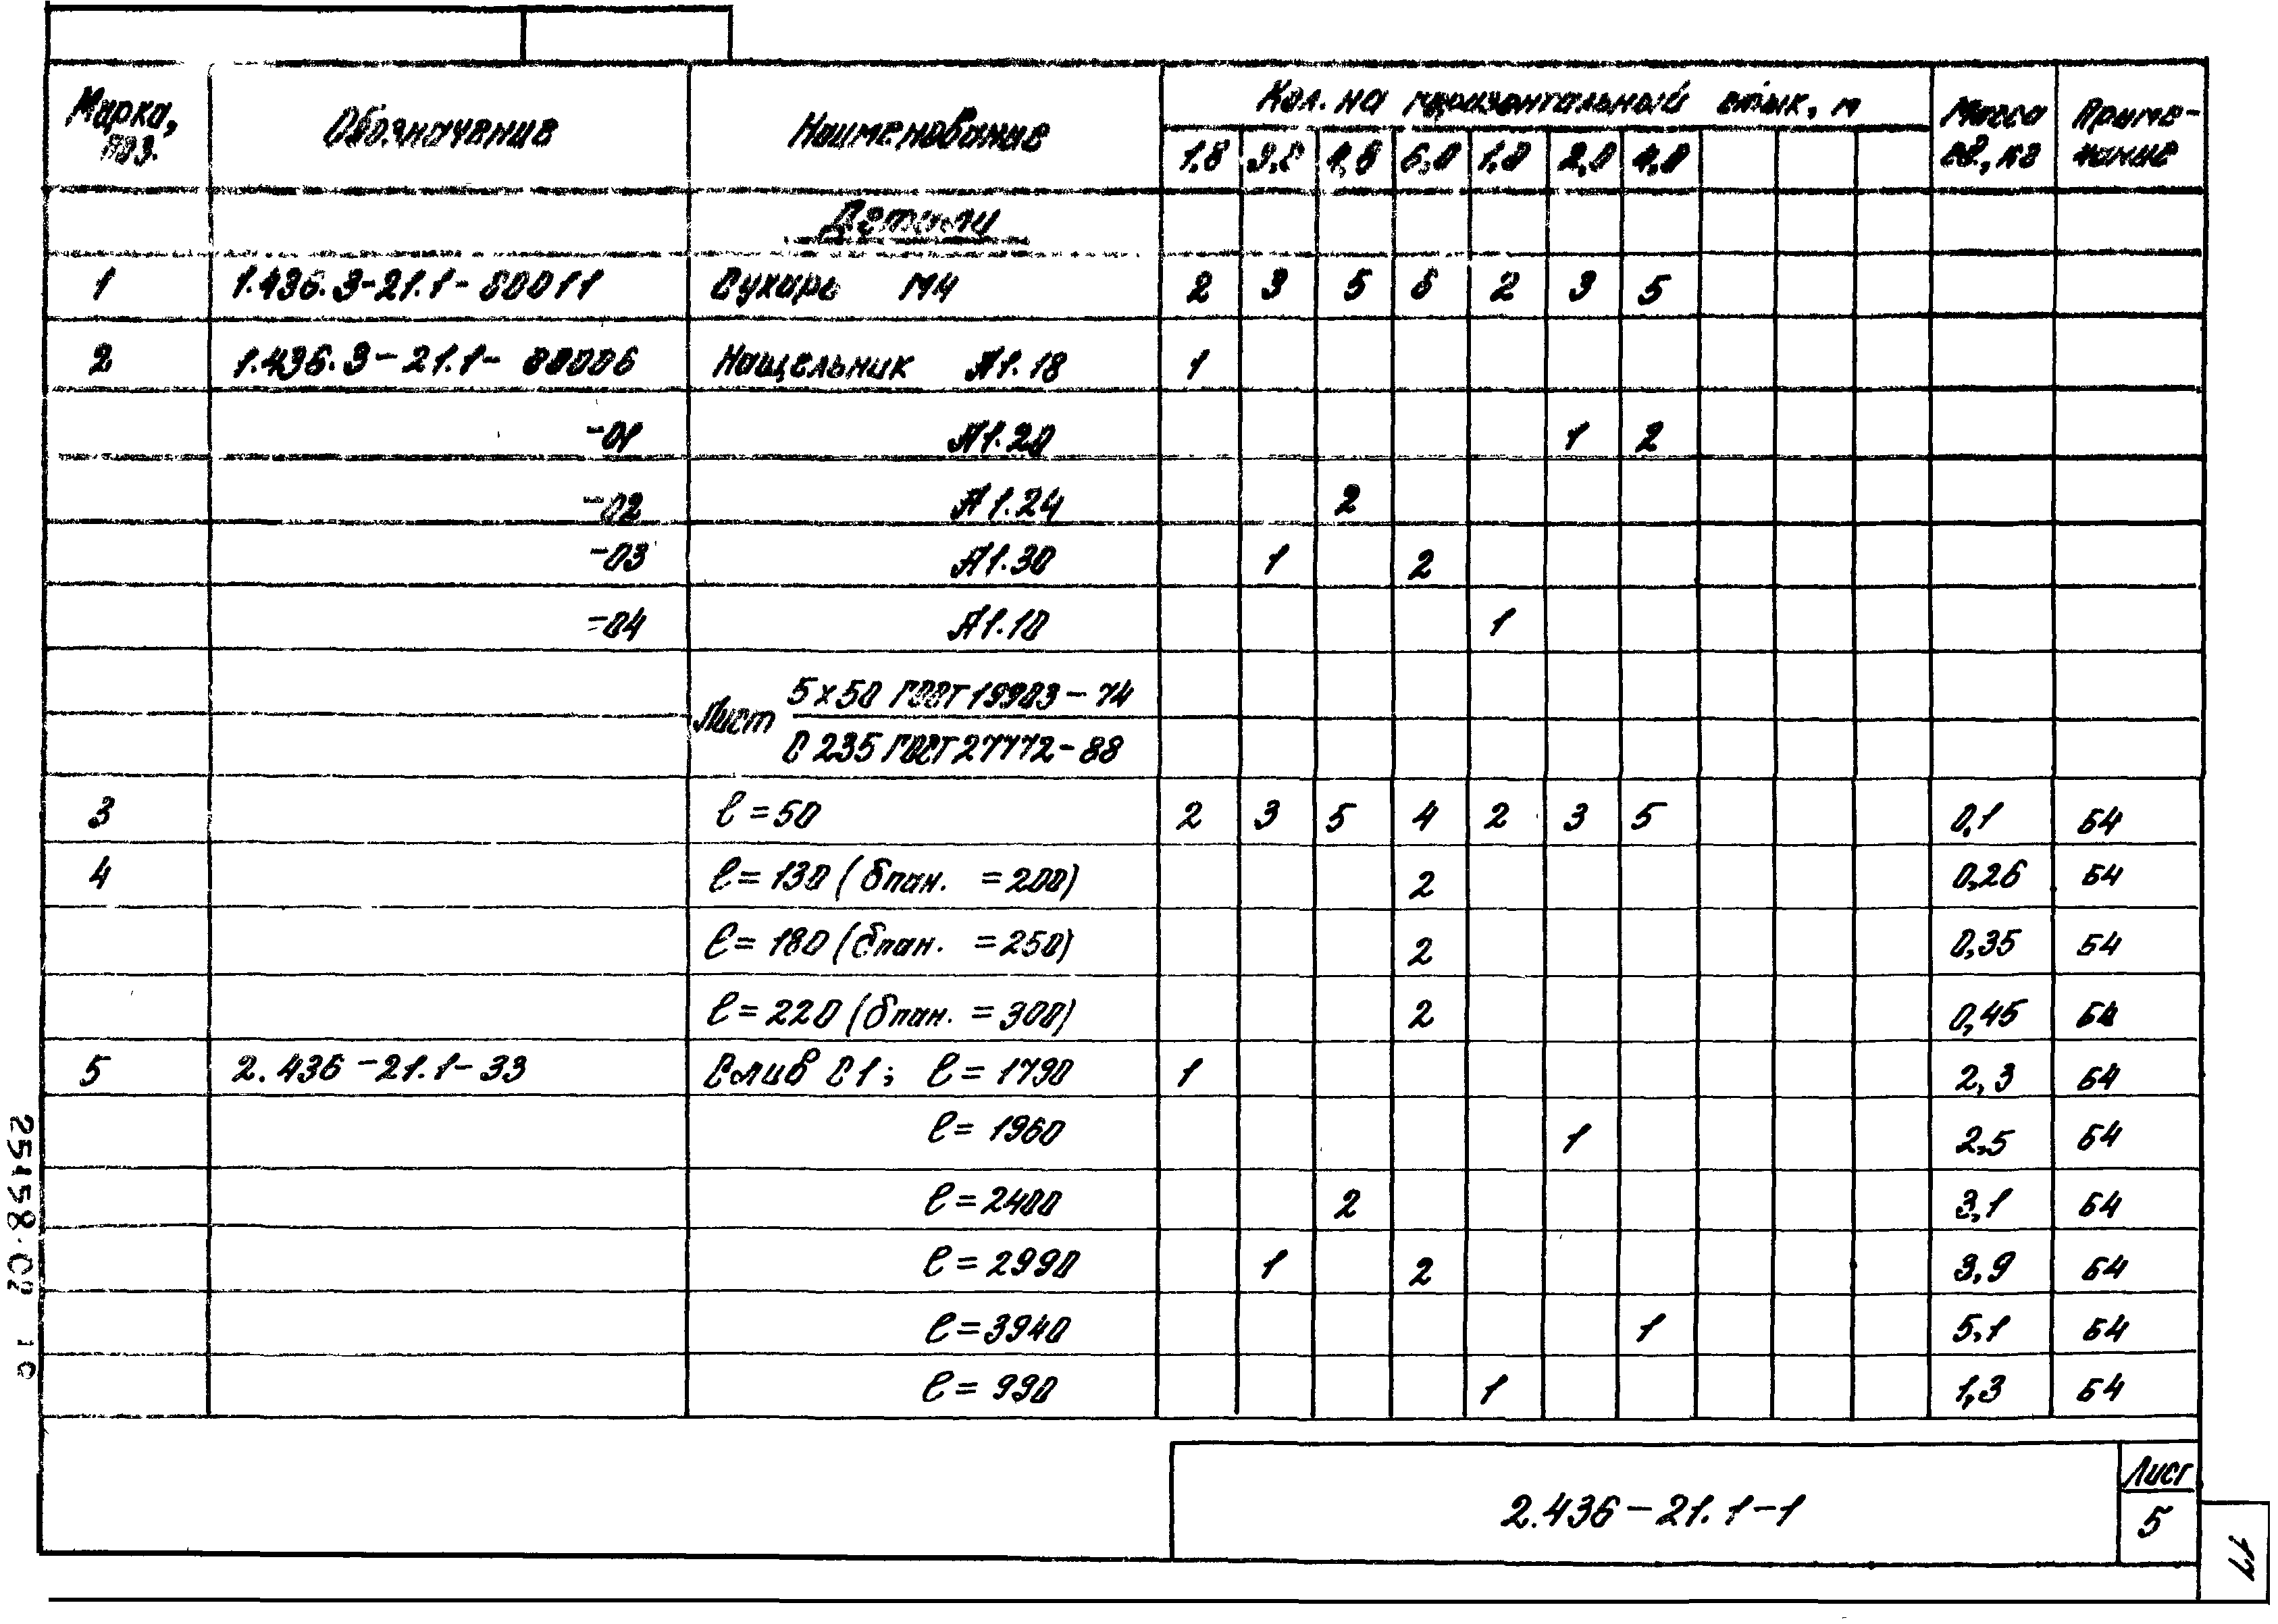 Марка, поз. Обозначение Наименование Кол. на горизонтальный стык, м Масса ед., кг Примечание
1,8 3,0 4,8 6,0 1,0 2,0 4,0
Детали
1 1.436.3-21.1-80011 Сухарь М4 2 3 5 6 2 3 5
2 1.436.3-21.1-00006 Нащельник Л1.18 1
-01 Л1.20 1 2
-02 Л1.24 2
-03 Л1.30 1 2
-04 Л1.10 1
Лист 5х50 ГОСТ 19903-74
С 235 ГОСТ 27772-88
3 ℓ=50 2 3 5 4 2 3 5 0,1 БЧ
4 ℓ=130 (δпан. =200) 2 0,26 БЧ
ℓ=180 (δпан. =250) 2 0,35 БЧ
ℓ=220 (δпан. =300) 2 0,45 БЧ
5 2.436-21.1-33 Слив С1; ℓ=1790 1 2,3 БЧ
ℓ=1960 1 2,5 БЧ
ℓ=2400 2 3,1 БЧ
ℓ=2990 1 2 3,9 БЧ
ℓ=3940 1 5,1 БЧ
ℓ=990 1 1,3 БЧ
25158-02 10
2.436-21.1-1
Лист
5